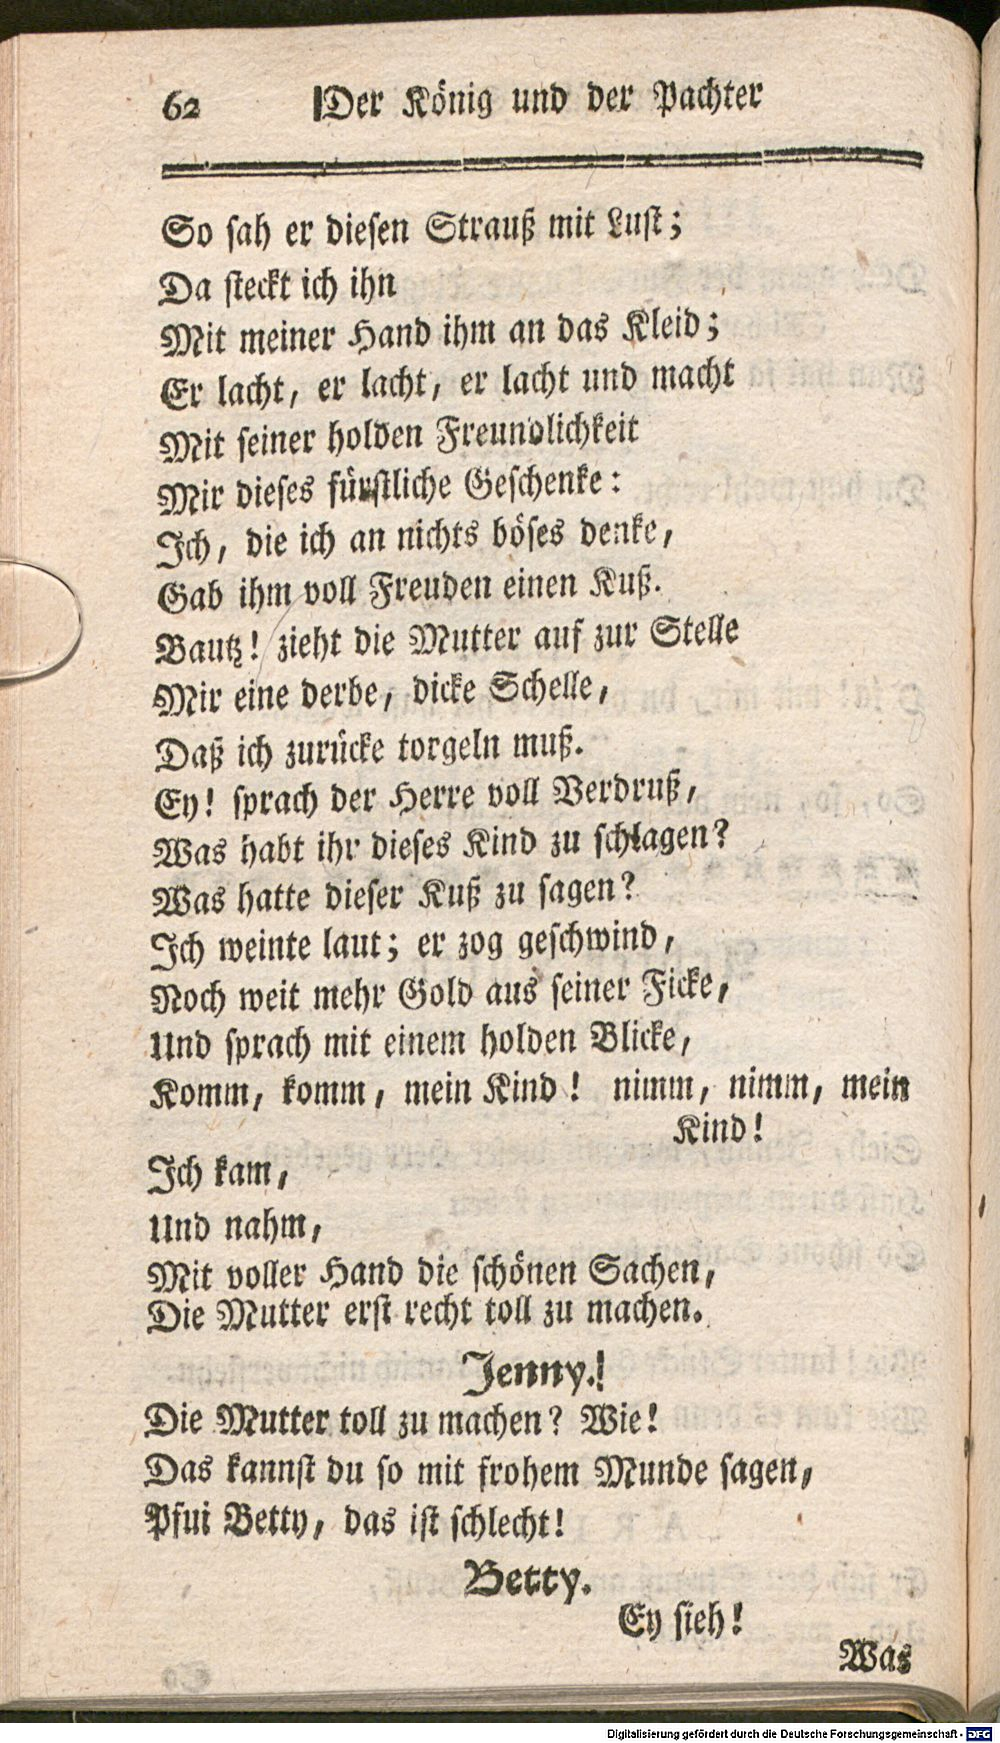 62 Der König und der Pachter
So sah er diesen Strauß mit Lust;
Da steckt ich ihn
Mit meiner Hand ihm an das Kleid;
Er lacht, er lacht, er lacht und macht
Mit seiner holden Freundlichkeit
Mir dieses fürstliche Geschenke:
Ich, die ich an nichts böses denke,
Gab ihm voll Freuden einen Kuß.
Bautz! zieht die Mutter auf zur Stelle
Mir eine derbe, dicke Schelle,
Daß ich zurücke torgeln muß.
Ey! sprach der Herre voll Verdruß,
Was habt ihr dieses Kind zu schlagen?
Was hatte dieser Kuß zu sagen?
Ich weinte laut; er zog geschwind,
Noch weit mehr Gold aus seiner Ficke,
Und sprach mit einem holden Blicke,
Komm, komm, mein Kind! nimm, nimm, mein
Kind!
Ich kam,
Und nahm,
Mit voller Hand die schönen Sachen,
Die Mutter erst recht toll zu machen.
Jenny.!
Die Mutter toll zu machen? Wie!
Das kannst du so mit frohem Munde sagen,
Pfui Betty, das ist schlecht!
Betty.
Ey sieh!
Was
Digitalisierung gefördert durch die Deutsche Forschungsgemeinschaft - DFG